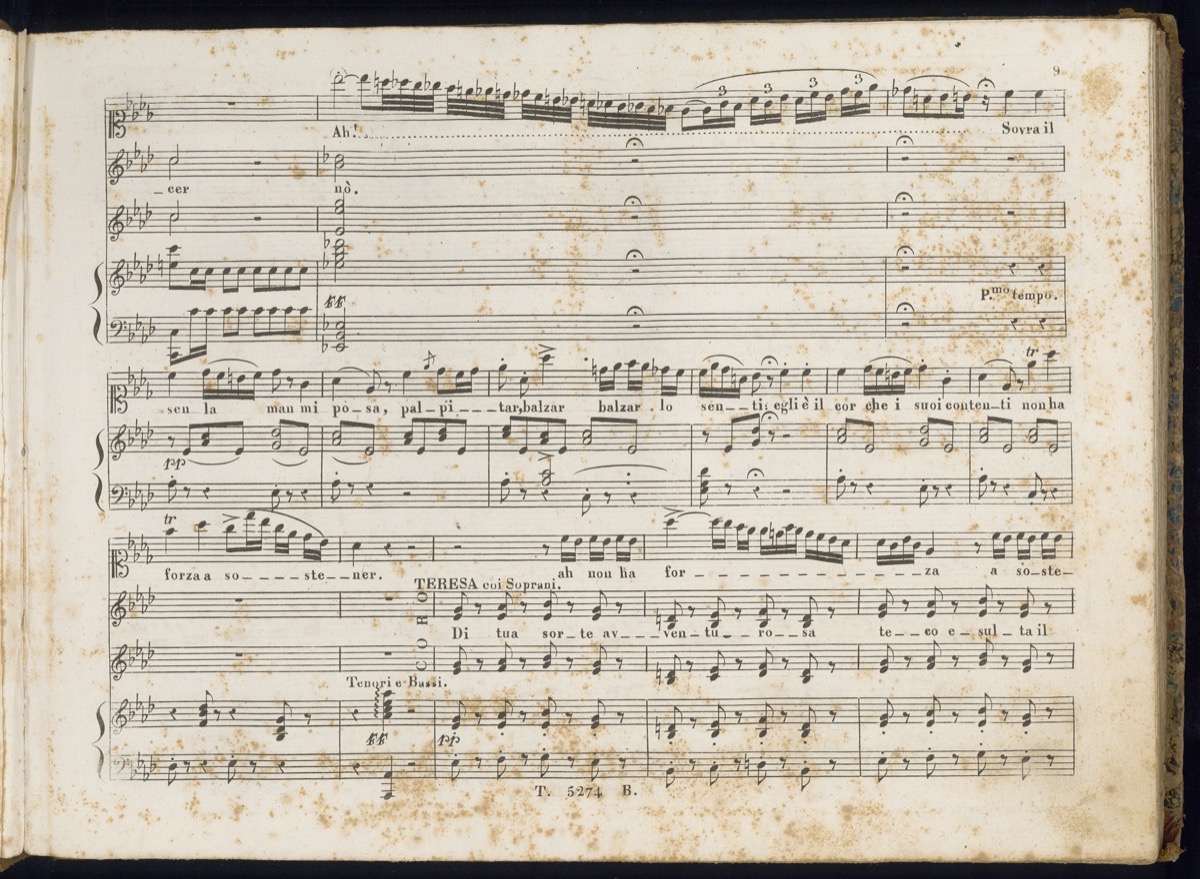 9
3 3 3
Ah! Sovra il
_cer nò.
FF P.mo tempo.
tr
sen la man mi po_sa, pal_pi__tar, balzar balzar lo sen__ti: egli è il cor che i suoi conten_ti non ha
pp
tr
forza a so____ste_ner. ah non ha for__________za a so_ste_
TERESA coi Soprani.
CORO
Di tua sor_te av___ven_tu_ro_sa te__co e_sul_ta il
Tenori e Bassi.
FF pp
T. 5274 B.